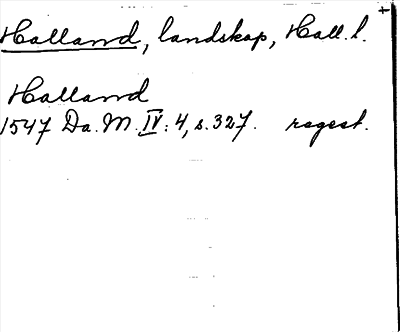 Halland, landskap, Hall. l.
Halland
1547 Da. M. IV: 4, s. 327. regest.